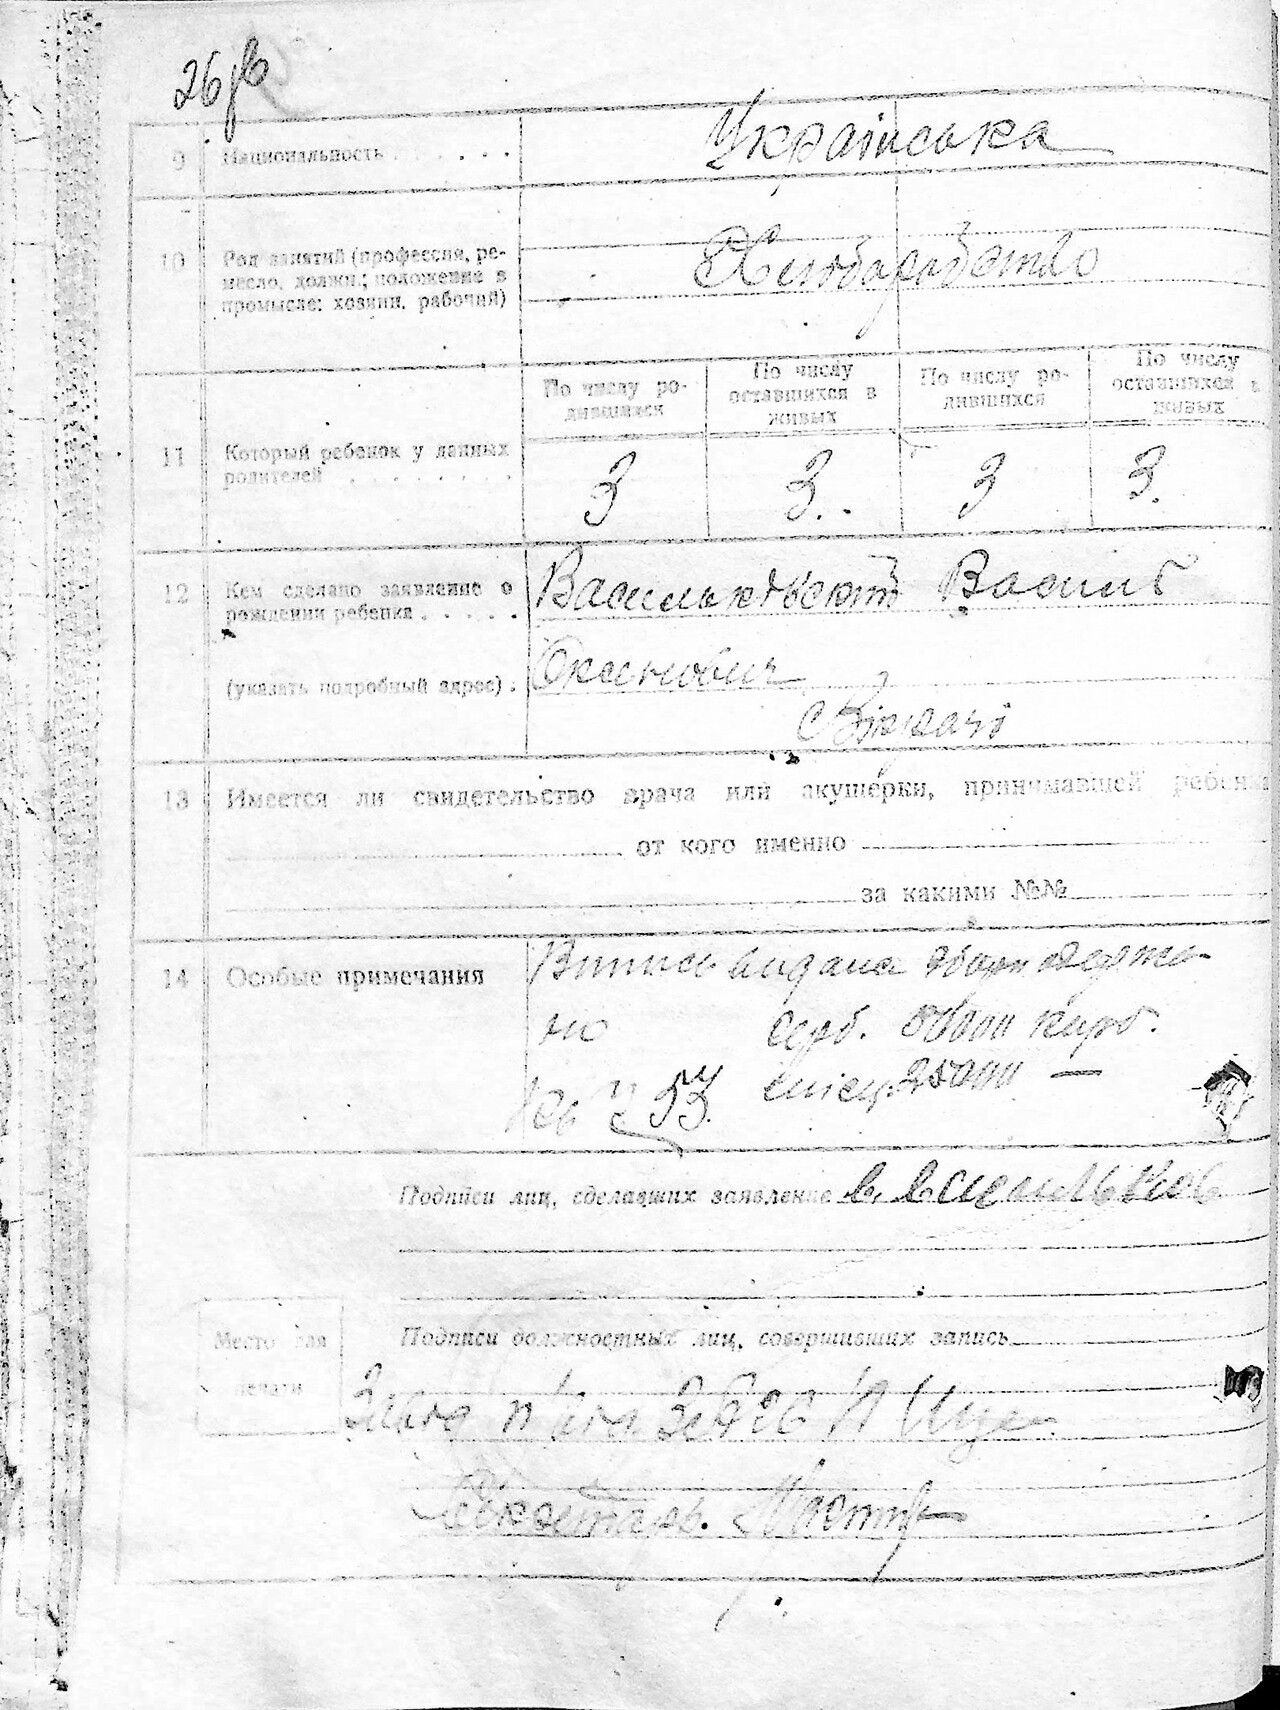 26
9 Национальность . . . . . . Українська
10 Род занятий (профессия, ре-
месло, должн.; положение в
промысле: хозяин, рабочий)
Хлоборобство
По числу ро-
дившихся
По числу
оставшихся в
живых
По числу ро-
дившихся
По числу
оставшихся в
живых
11 Который ребенок у данных
родителей . . . . . . . .
3 3. 3 3.
12 Кем сделано заявление о
рождении ребенка . . . . .
Васильковський Василь
(указать подробный адрес) .
с
13 Имеется ли свидетельство врача или акушерки, принимавшей ребенка
от кого именно
за какими №№
14 Особые примечания
Випись видана збори одержа-
но 50000 карб.
25000 —
Подписи лиц, сделавших заявление в. василъков
Подписи должностных лиц, совершивших запись
Место для
печати
Секретарь.